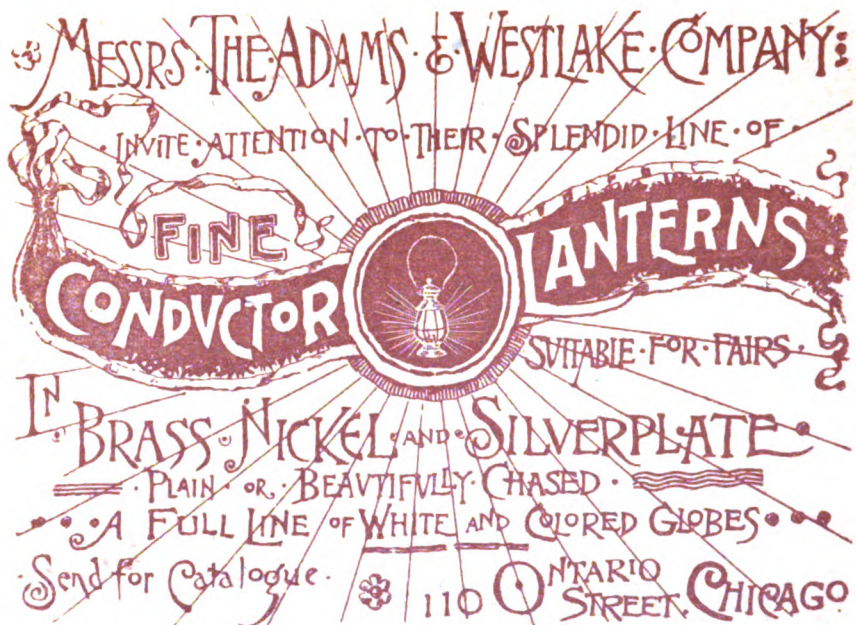 MESSRS · THE · ADAMS · & · WESTLAKE · COMPANY
· INVITE · ATTENTION · TO · THEIR · SPLENDID · LINE · OF ·
FINE
CONDVCTOR
LANTERNS
SUITABLE · FOR · FAIRS ·
IN
BRASS · NICKEL · AND · SILVERPLATE ·
· PLAIN · OR · BEAVTIFVLLY · CHASED ·
A FULL LINE OF WHITE AND COLORED GLOBES
· Send for Catalogue ·
110 ONTARIO STREET. CHICAGO